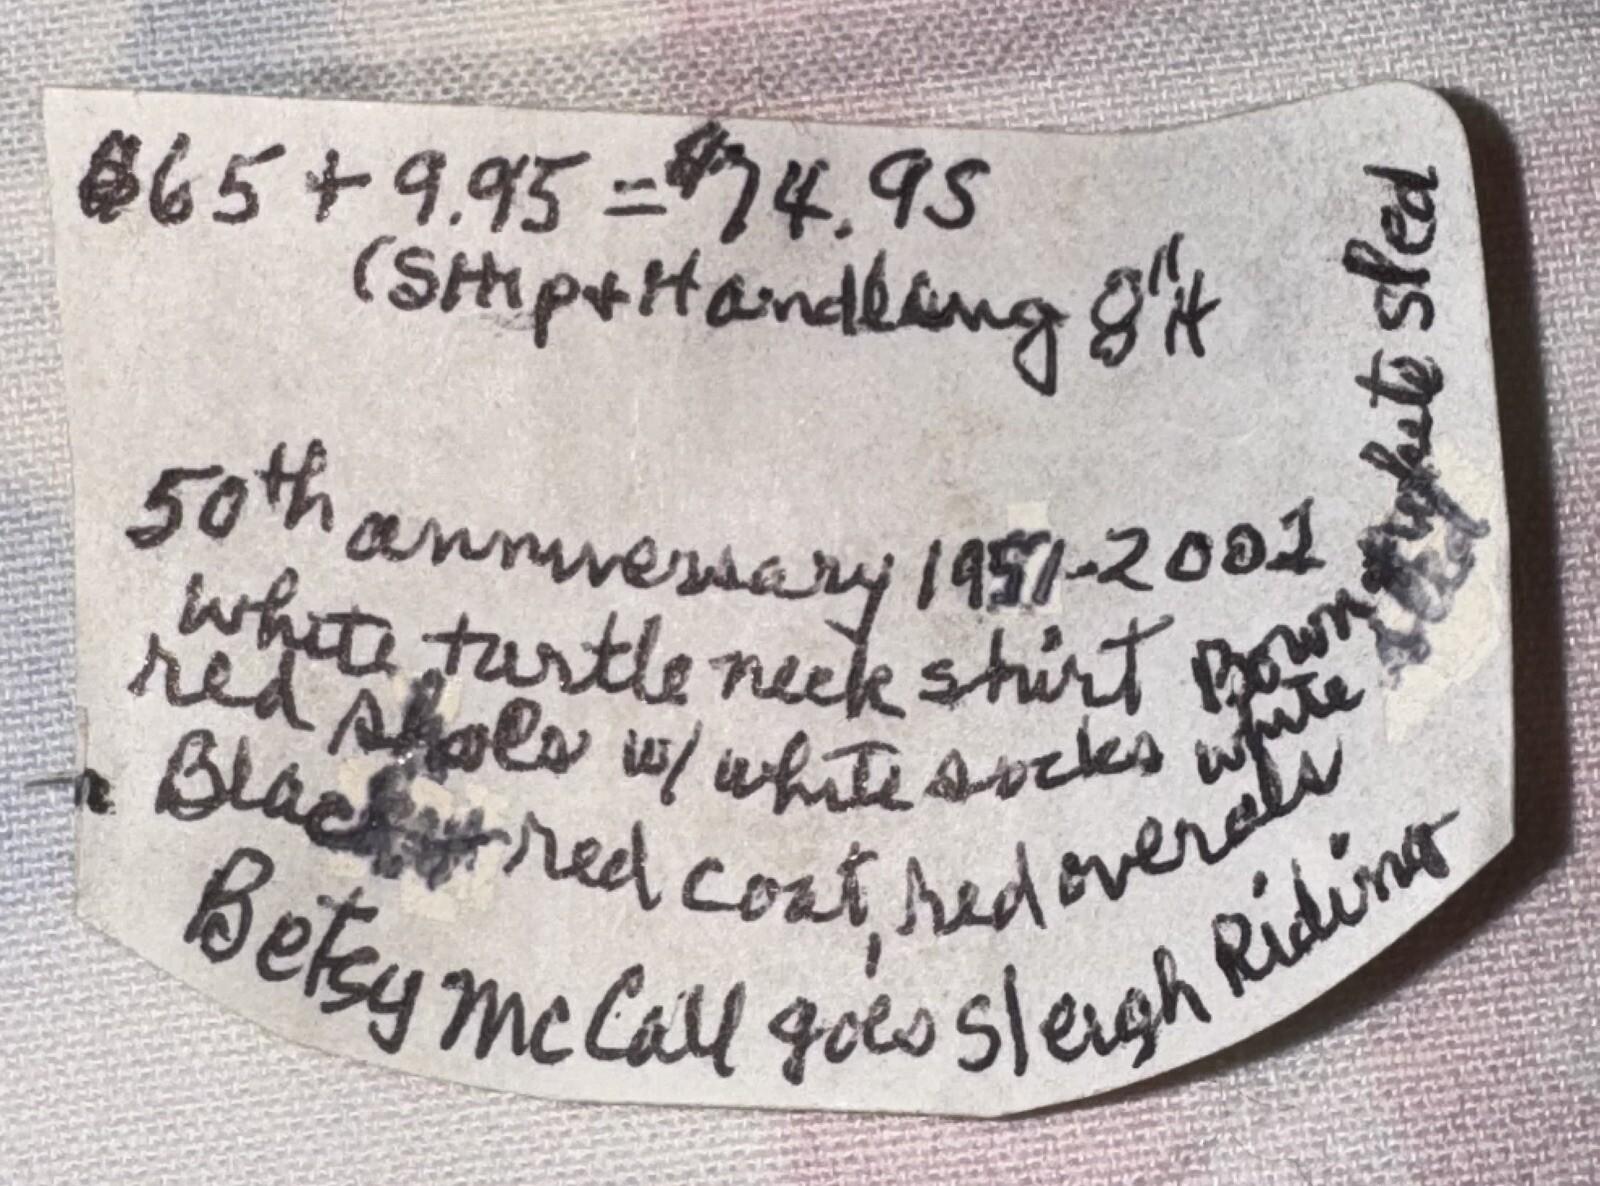 $65 + 9.95 = $74.95
(SHip + Handleing 8" H
50th anniversary 1951-2001
white turtle neck shirt Bown
red shoes w/ white socks white
Black red coat, red overalls
Betsy McCall goes sleigh Riding
white sled